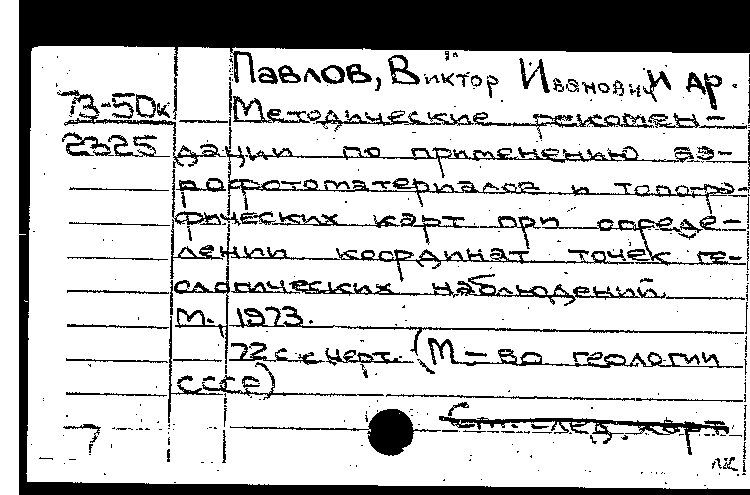 Павлов, Виктор Иванович и др.
73-50к Методические рекомен-
2325 дации по применению аэ-
рофотоматериалов и топогра-
фических карт при опреде-
лении координат точек ге-
ологических наблюдений.
М., 1973.
72 с. с черт. (М-во геологии
СССР)
См. след. карт
7